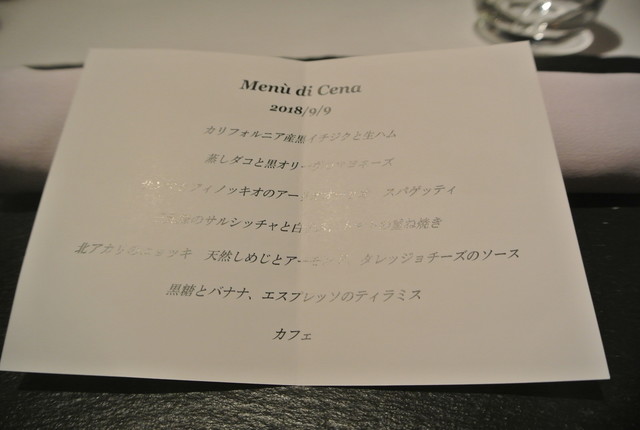 Menù di Cena
2018/9/9
カリフォルニア産黒イチジクと生ハム
蒸しダコと黒オリーヴ
フィノッキオのアー スパゲッティ
のサルシッチャと白 重ね焼き
北アカリのニョッキ 天然しめじとアーモンド、タレッジョチーズのソース
黒糖とバナナ、エスプレッソのティラミス
カフェ